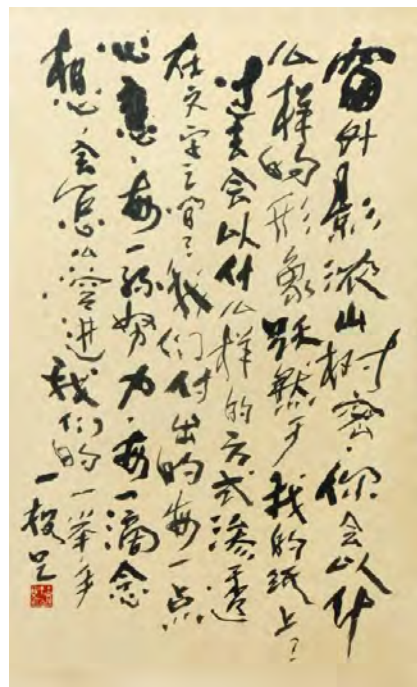 窗外影浓山树密,你会以什
么样的形象跃然于我的纸上?
过去会以什么样的方式渗透
在文字之间?我们付出的每一点
心意,每一丝努力,每一滴念
想,会怎么容进我们的一举手
一投足